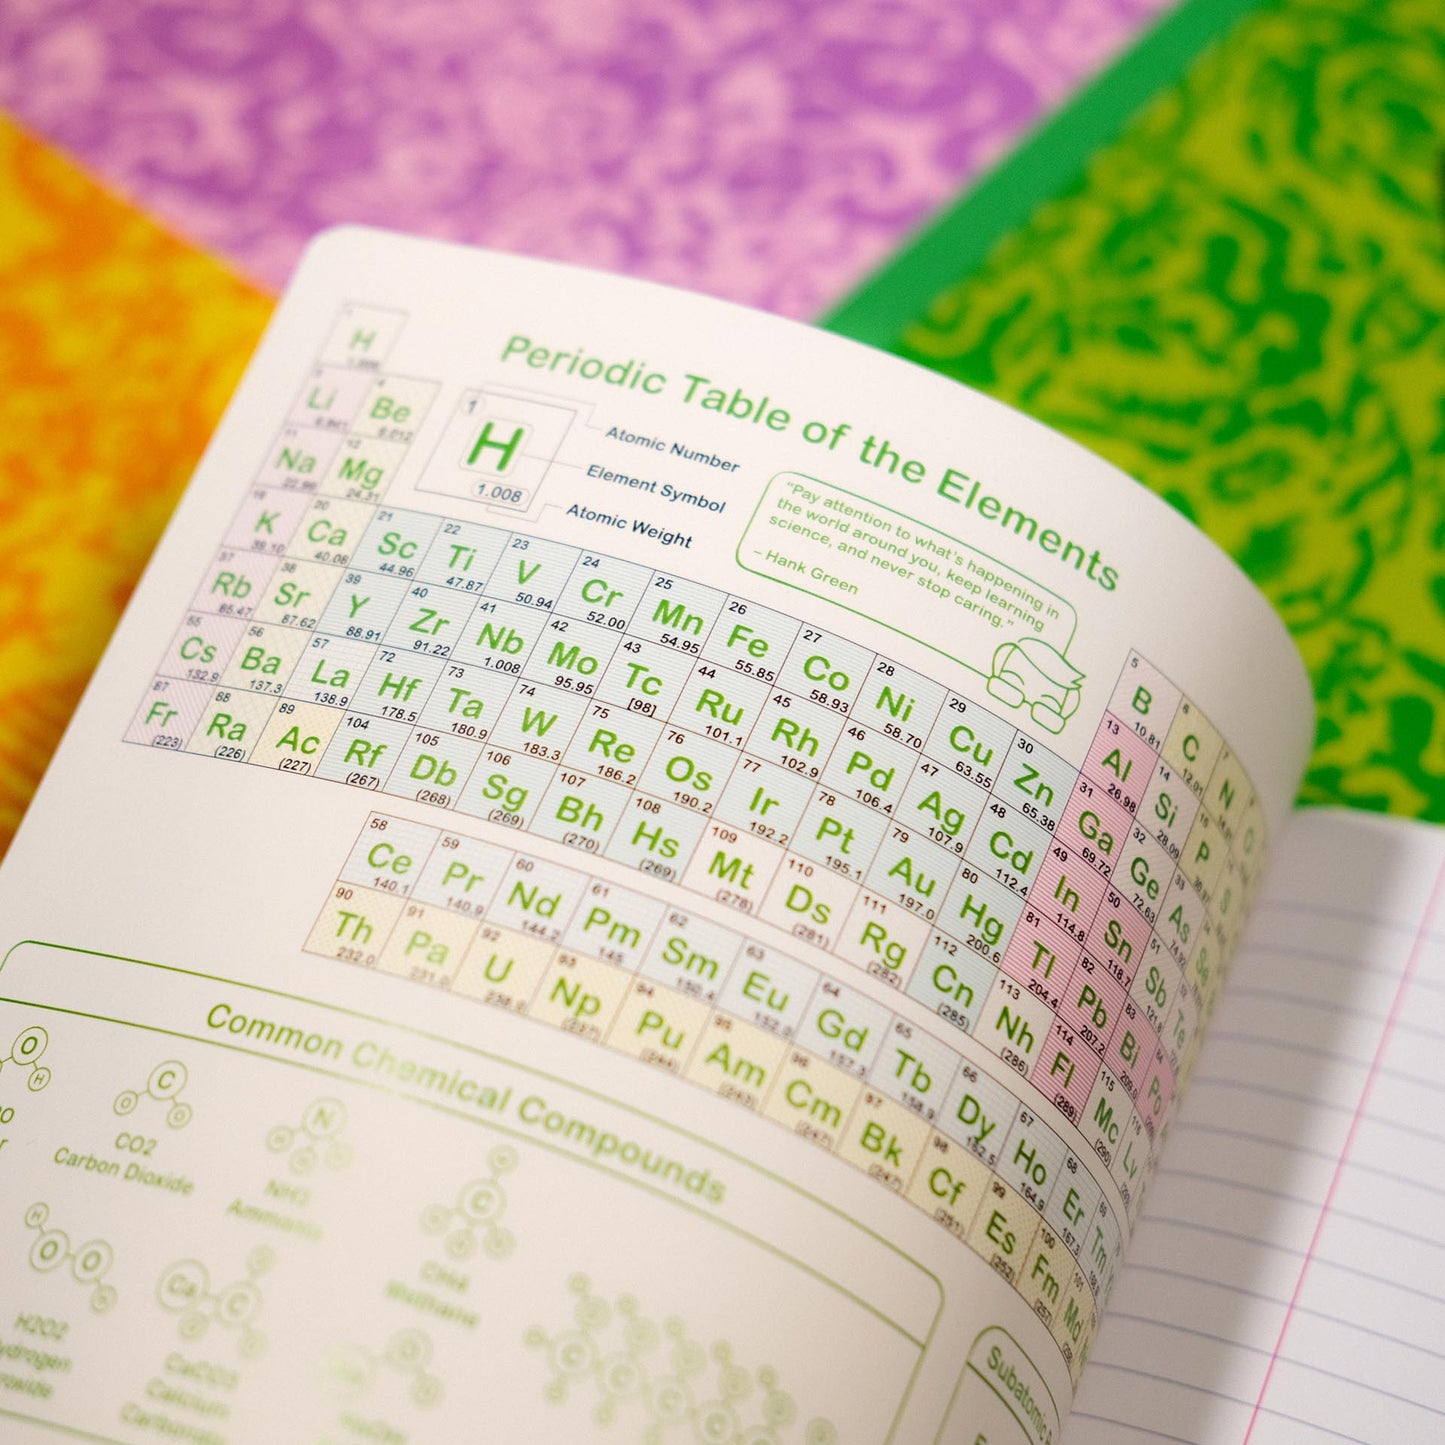 Periodic Table of the Elements
1
H
1.008
Atomic Number
Element Symbol
Atomic Weight
"Pay attention to what's happening in
the world around you, keep learning
science, and never stop caring."
– Hank Green
H
Li Be
Na Mg
12
24.31
K Ca Sc Ti V Cr Mn Fe Co Ni Cu Zn
20 21 22 23 24 25 26 27 28 29 30
40.08 44.96 47.87 50.94 52.00 54.95 55.85 58.93 58.70 63.55 65.38
Rb Sr Y Zr Nb Mo Tc Ru Rh Pd Ag Cd
37 38 39 40 41 42 43 44 45 46 47 48
85.47 87.62 88.91 91.22 1.008 95.95 [98] 101.1 102.9 106.4 107.9 112.4
Cs Ba La Hf Ta W Re Os Ir Pt Au Hg
55 56 57 72 73 74 75 76 77 78 79 80
132.9 137.3 138.9 178.5 180.9 183.3 186.2 190.2 192.2 195.1 197.0 200.6
Fr Ra Ac Rf Db Sg Bh Hs Mt Ds Rg Cn
87 88 89 104 105 106 107 108 109 110 111 112
(223) (226) (227) (267) (268) (269) (270) (269) (278) (281) (282) (285)
5 6 7
B C N O
10.81 12.01
13 14 15
Al Si P S
26.98 28.09
31 32 33
Ga Ge As Se
69.72 72.63
49 50 51
In Sn Sb Te
114.8 118.7
81 82 83 84
Tl Pb Bi Po
204.4 207.2
113 114 115 116
Nh Fl Mc Lv
(286) (289) (290)
58 59 60 61 62 63 64 65 66 67 68
Ce Pr Nd Pm Sm Eu Gd Tb Dy Ho Er Tm
140.1 140.9 144.2 145 150.4 152.0 157.3 158.9 162.5 164.9 167.3
90 91 92 93 94 95 96 97 98 99 100 101
Th Pa U Np Pu Am Cm Bk Cf Es Fm Md
232.0 231.0 238.0 (237) (244) (243) (247) (247) (251) (252) (257)
Common Chemical Compounds
O H
C O O
CO2
Carbon Dioxide
N
NH3
Ammonia
C
CH4
Methane
H O O H
H2O2
Ca C
CaCO3
Calcium
Carbonate
C
Subatomic